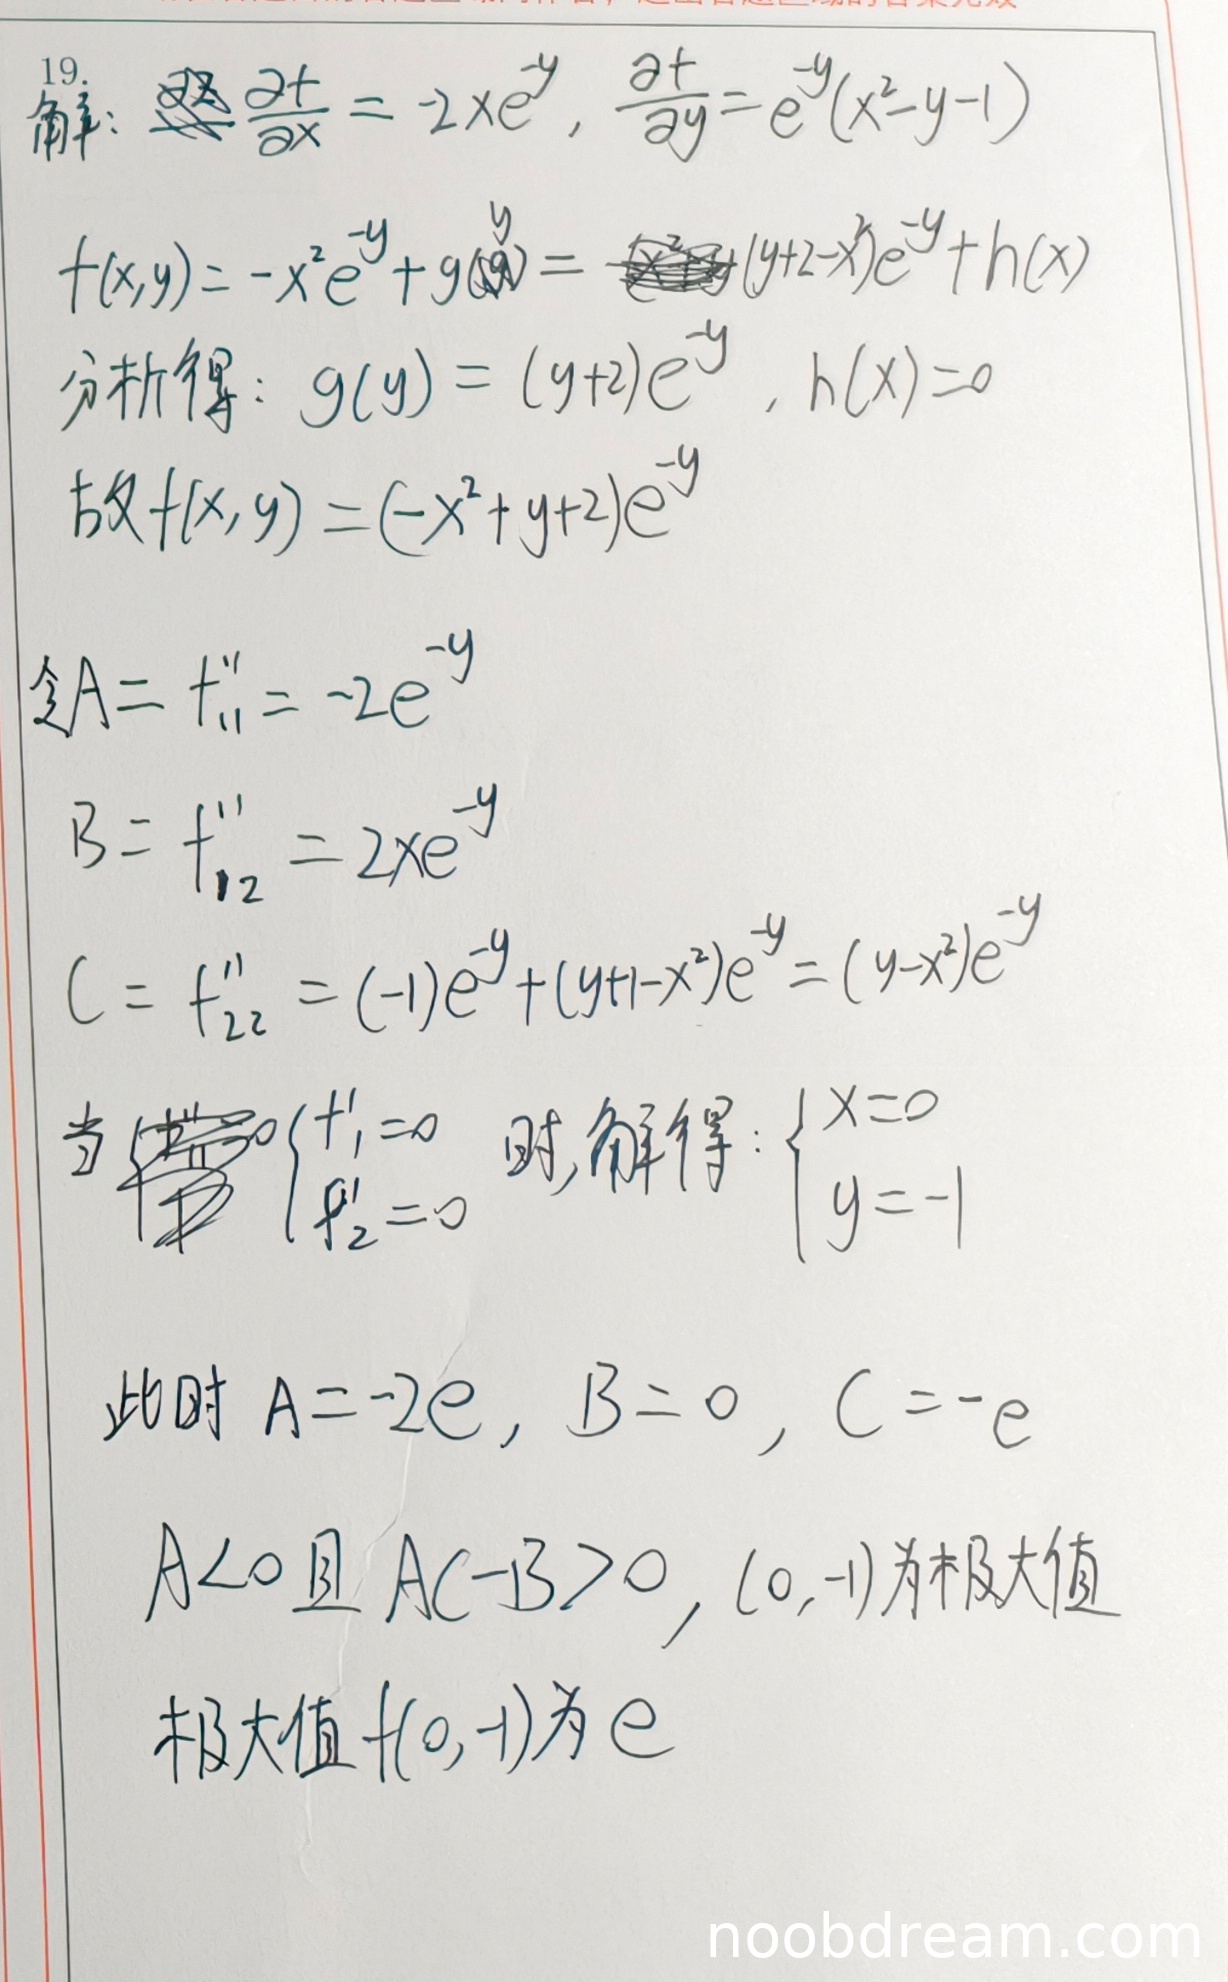 19.
解: ∂f/∂x = -2xe^{-y}, ∂f/∂y = e^{-y}(x²-y-1)
f(x,y) = -x²e^{-y} + g(y) = (y+2-x²)e^{-y} + h(x)
分析得: g(y) = (y+2)e^{-y}, h(x)=0
故f(x,y) = (-x²+y+2)e^{-y}
令A = f''₁₁ = -2e^{-y}
B = f''₁₂ = 2xe^{-y}
C = f''₂₂ = (-1)e^{-y} + (y+1-x²)e^{-y} = (y-x²)e^{-y}
当 { f'₁=0 f'₂=0 时, 解得: { x=0 y=-1
此时 A=-2e, B=0, C=-e
A<0且 AC-B>0, (0,-1)为极大值
极大值f(0,-1)为e
noobdream.com